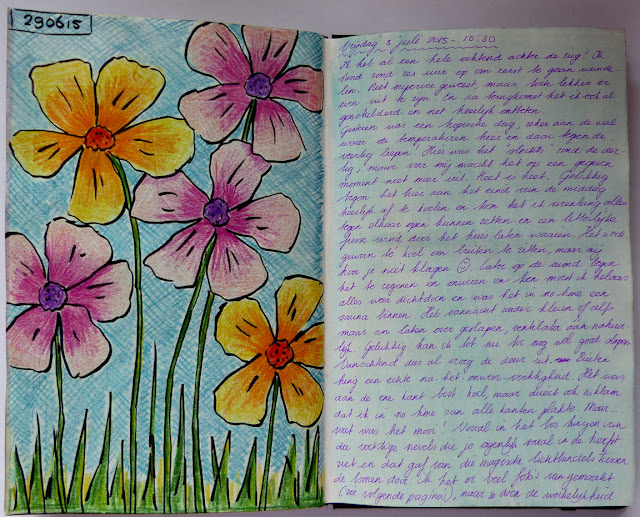 290615
Vrijdag 3 juli 2015 - 10:30
Ik heb al een hele ochtend achter de rug! Ik
stond rond zes uur op om eerst te gaan wande-
len. Niet superver geweest, maar toch lekker er
even uit te zijn! En na terugkomst heb ik ook al
geschilderd en net heerlijk ontbeten.
Gisteren was een tropische dag, zeker aan de wal
waar de temperaturen hier en daar tegen de
veertig liepen. Hier was het 'slechts' rond de der-
tig, maar voor mij maakt het op een gegeven
moment niet meer uit. Heet is heet. Gelukkig
begon het hier aan het eind van de middag
heerlijk af te koelen en ben heb ik urenlang alles
tegen elkaar open kunnen zetten en een letterlijke
frisse wind door het huis laten waaien. Het werd
gewoon te koel om buiten te zitten, maar mij
hoor je niet klagen ☺. Later op de avond begon
het te regenen en onweren en toen moest ik helaas
alles weer dichtdoen en was het in no-time een
sauna binnen. Heb vannacht zonder kleren of zelfs
maar een laken over geslapen, ventilator aan natuur-
lijk. Gelukkig kan ik tot nu toe nog wel goed slapen.
Vanochtend dus al vroeg de deur uit. Buiten
hing een echte na het onweer-vochtigheid. Het was
aan de ene kant best koel, maar direct ook zo klam
dat ik in no-time aan alle kanten plakte. Maar...
wat was het mooi! Vooral in het bos hingen van
die vochtige nevels die je eigenlijk vooral in de herfst
ziet en dat gaf van die magische lichtbundels tussen
de bomen door. Ik heb er veel foto's van gemaakt
(zie volgende pagina's), maar zo door de vochtigheid